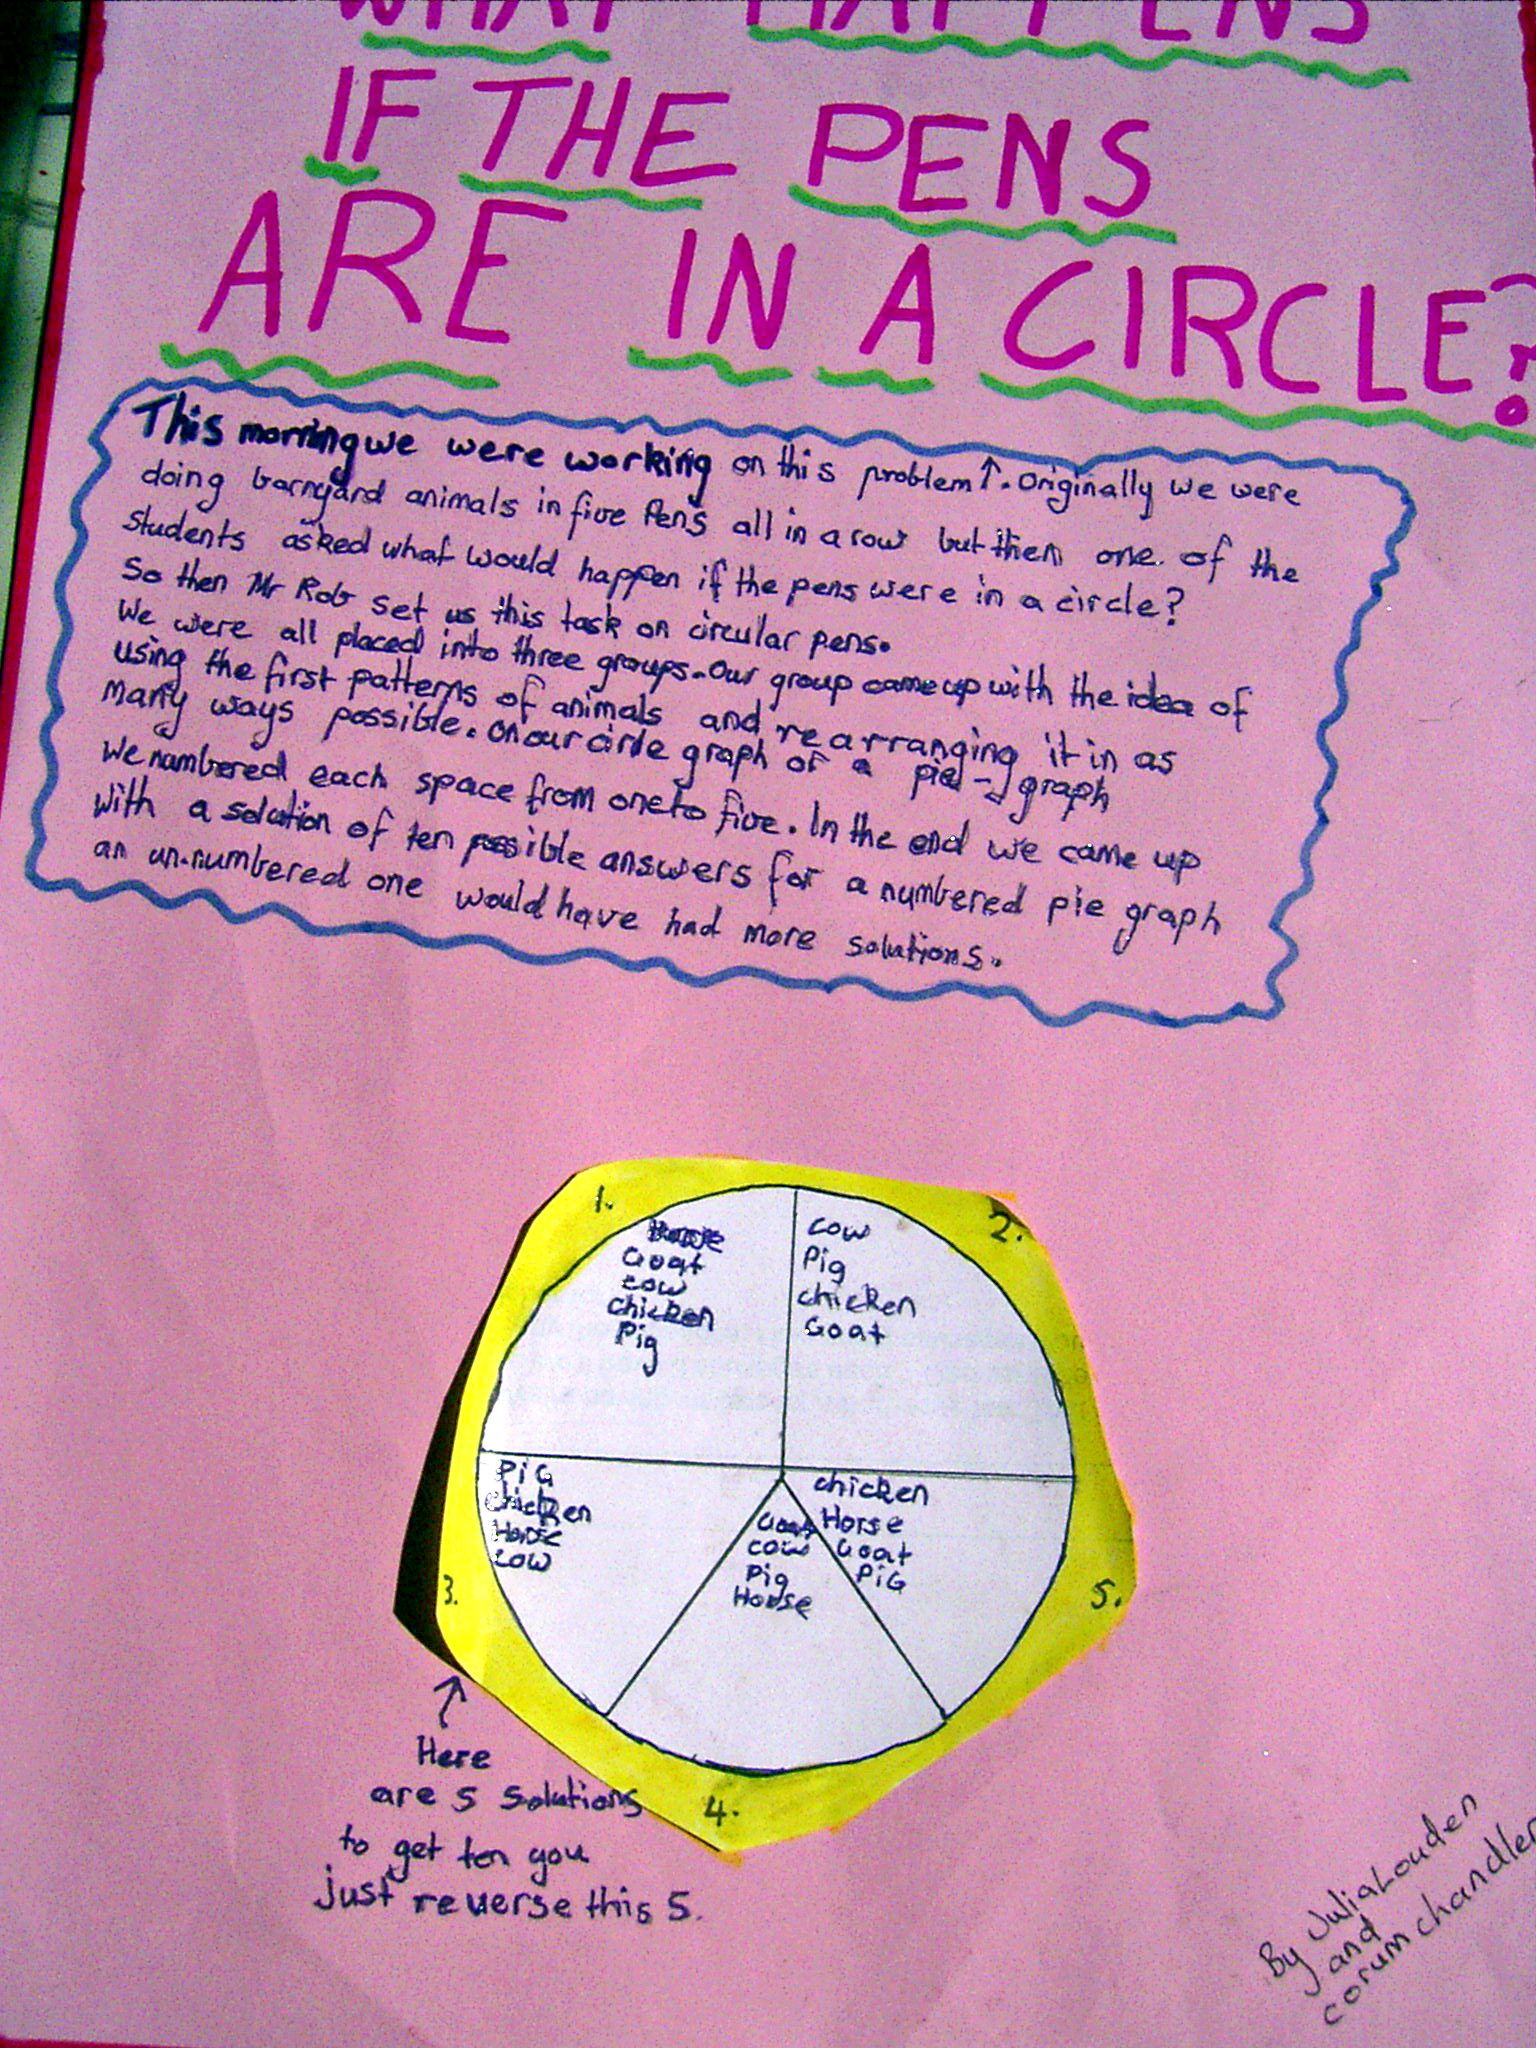 WHAT HAPPENS
IF THE PENS
ARE IN A CIRCLE?
This morning we were working on this problem↑. Originally we were
doing barnyard animals in five Pens all in a row but then one of the
students asked what would happen if the pens were in a circle?
So then Mr Rob set us this task on circular pens.
We were all placed into three groups. Our group came up with the idea of
using the first patterns of animals and rearranging it in as
many ways possible. On our circle graph or a pie-graph
we numbered each space from one to five. In the end we came up
with a solution of ten possible answers for a numbered pie graph
an un-numbered one would have had more solutions.
1.
Horse
Goat
cow
chicken
Pig
2.
cow
Pig
chicken
Goat
3.
PiG
chicken
Horse
cow
4.
Goat
cow
Pig
Horse
5.
chicken
Horse
Goat
PiG
↑
Here
are 5 solutions
to get ten you
just reverse this 5.
By Julia Louden
and
corum chandler